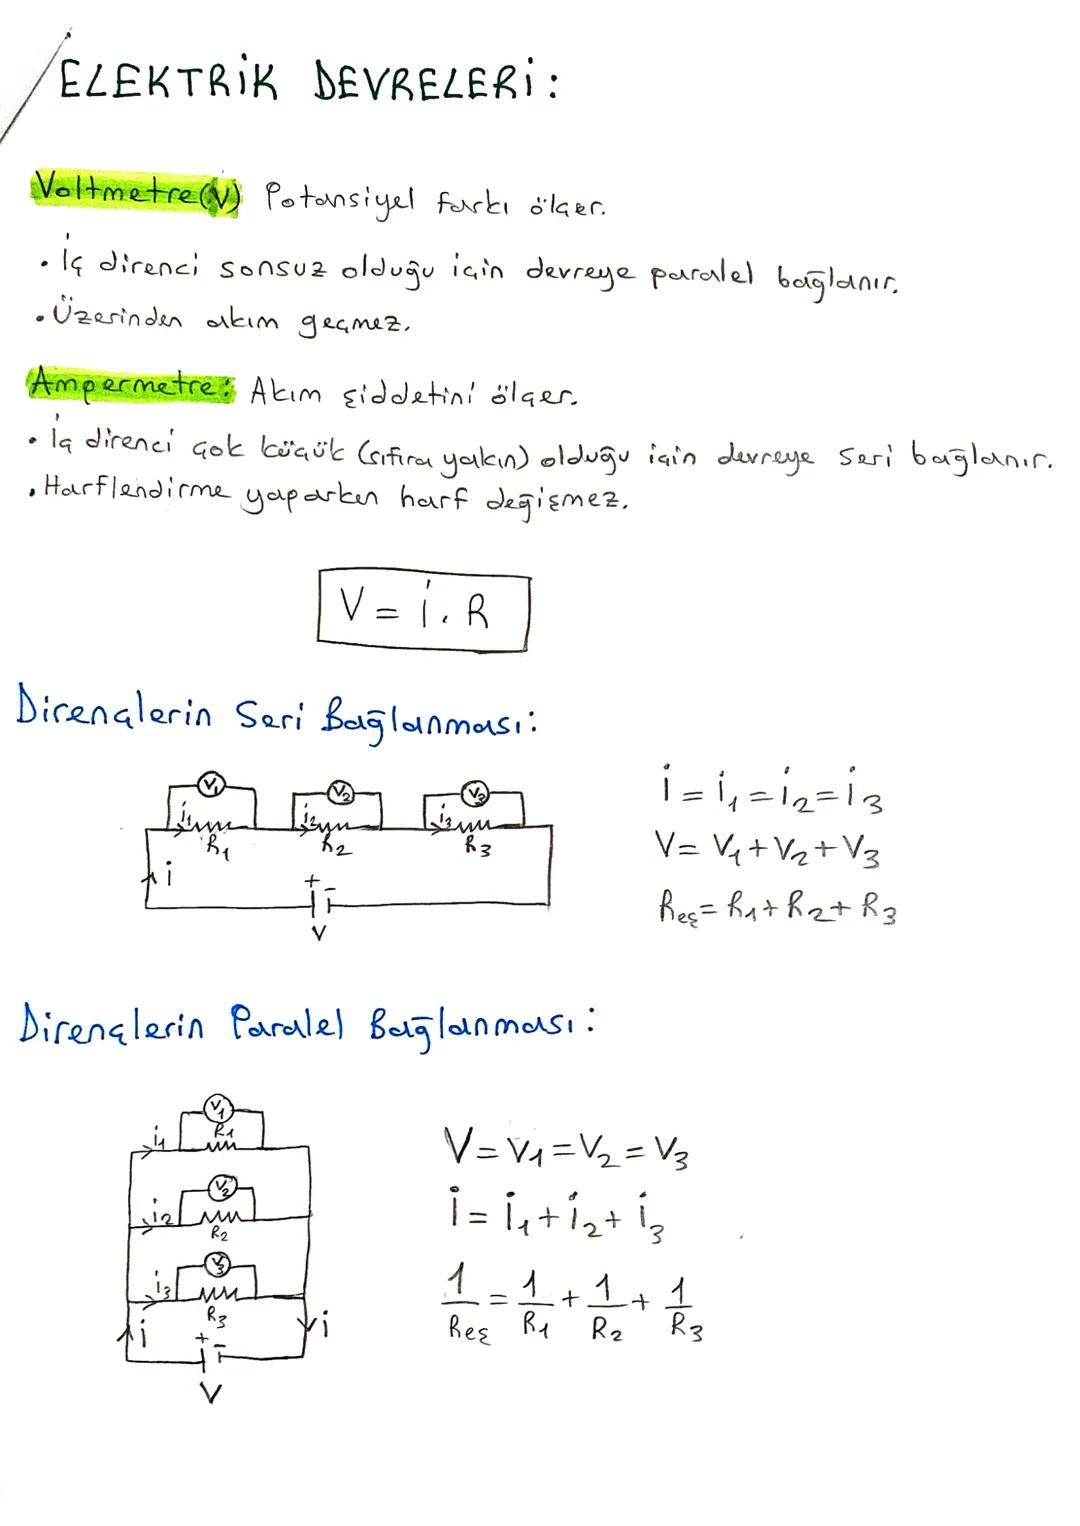 ELEKTRİK DEVRELERİ:
Voltmetre(V) Potansiyel farkı ölçer.
• İç direnci sonsuz olduğu için devreye paralel bağlanır.
• Üzerinden akım geçmez.
Ampermetre: Akım şiddetini ölçer.
• İç direnci çok küçük (sıfıra yakın) olduğu için devreye seri bağlanır.
• Harflendirme yaparken harf değişmez.
V = i . R
Dirençlerin Seri Bağlanması:
V1 V2 V3
i1 i2 i3
R1 R2 R3
i
+ -
V
i = i1 = i2 = i3
V = V1 + V2 + V3
Reş = R1 + R2 + R3
Dirençlerin Paralel Bağlanması:
V1
i1 R1
V2
i2
R2
V3
i3
R3
i + - i
V
V = V1 = V2 = V3
i = i1 + i2 + i3
1/Reş = 1/R1 + 1/R2 + 1/R3